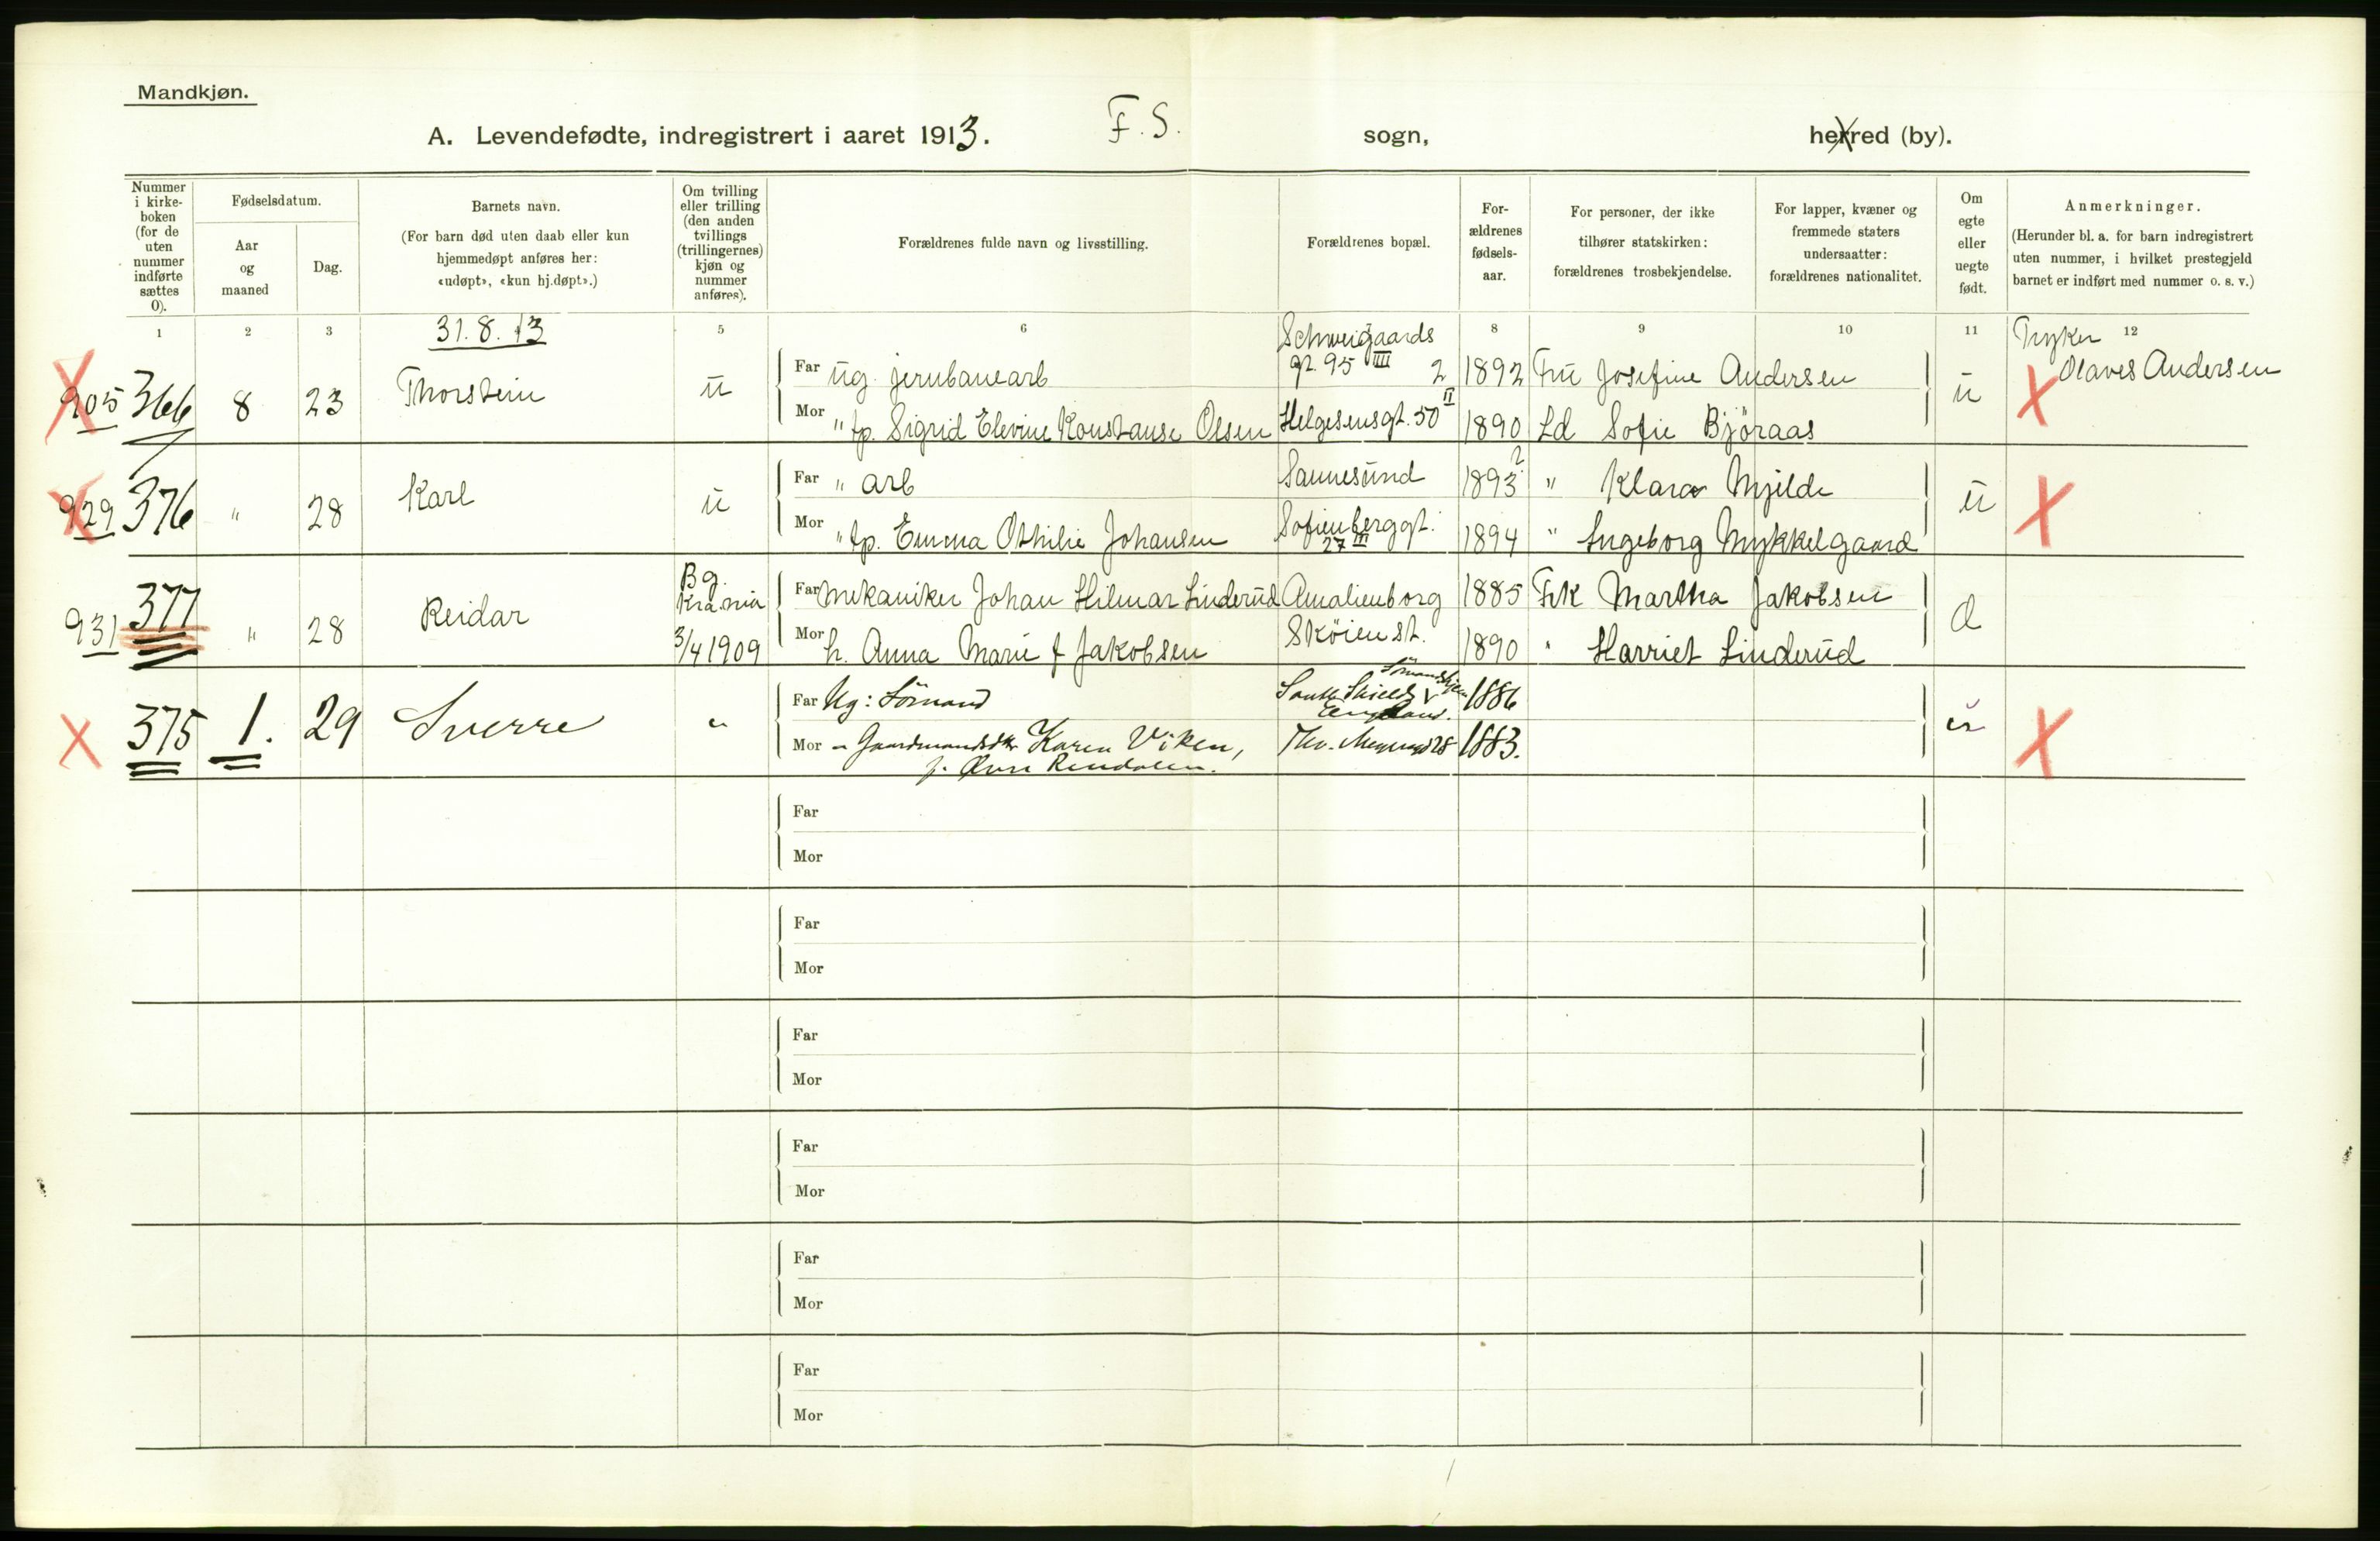 Mandkjøn.
A. Levendefødte, indregistrert i aaret 1913. F. S. sogn, herred (by).
Nummer i kirke- boken (for de uten nummer indførte sættes 0).
Fødselsdatum.
Aar og maaned
Dag.
Barnets navn.
(For barn død uten daab eller kun
hjemmedøpt anføres her:
«udøpt», «kun hj.døpt».)
Om tvilling
eller trilling
(den anden
tvillings
(trillingernes)
kjøn og
nummer
anføres).
Forældrenes fulde navn og livsstilling.
Forældrenes bopæl.
For-
ældrenes
fødsels-
aar.
For personer, der ikke
tilhører statskirken:
forældrenes trosbekjendelse.
For lapper, kvæner og
fremmede staters
undersaatter:
forældrenes nationalitet.
Om
egte
eller
uegte
født.
Anmerkninger.
(Herunder bl. a. for barn indregistrert
uten nummer, i hvilket prestegjeld
barnet er indført med nummer o. s. v.)
1 2 3 31.8.13 5 6 8 9 10 11 12
905 366 8 23 Thorstein u
Far ug. jernbanearb Schweigaards gt. 95 IIII 2 1892 Fru Josefine Andersen u Tryker Olaves Andersen
Mor " tp. Sigrid Elevine Konstanse Olsen Helgesensgt. 50 II 1890 Ld Sofie Björaas
929 376 " 28 Karl u
Far " arb Sannesund 1893 2 " Klara Mjelde u
Mor " tp. Emma Othilie Johansen Sofienberggt. 27 III 1894 " Ingeborg Mykkelgaard
931 377 " 28 Reidar Bg. Kra.nia 3/4 1909
Far Mekaniker Johan Hilmar Linderud Amalienborg 1885 Frk Martha Jakobsen
Mor h. Anna Marie f Jakobsen Sköien st. 1890 " Harriet Linderud
375 1. 29 Sverre "
Far Ug: Sömand South Shields England. 1886 u
Mor " Karen Viken, 1883.
f. Øvre Rendalen.
Far
Mor
Far
Mor
Far
Mor
Far
Mor
Far
Mor
Far
Mor